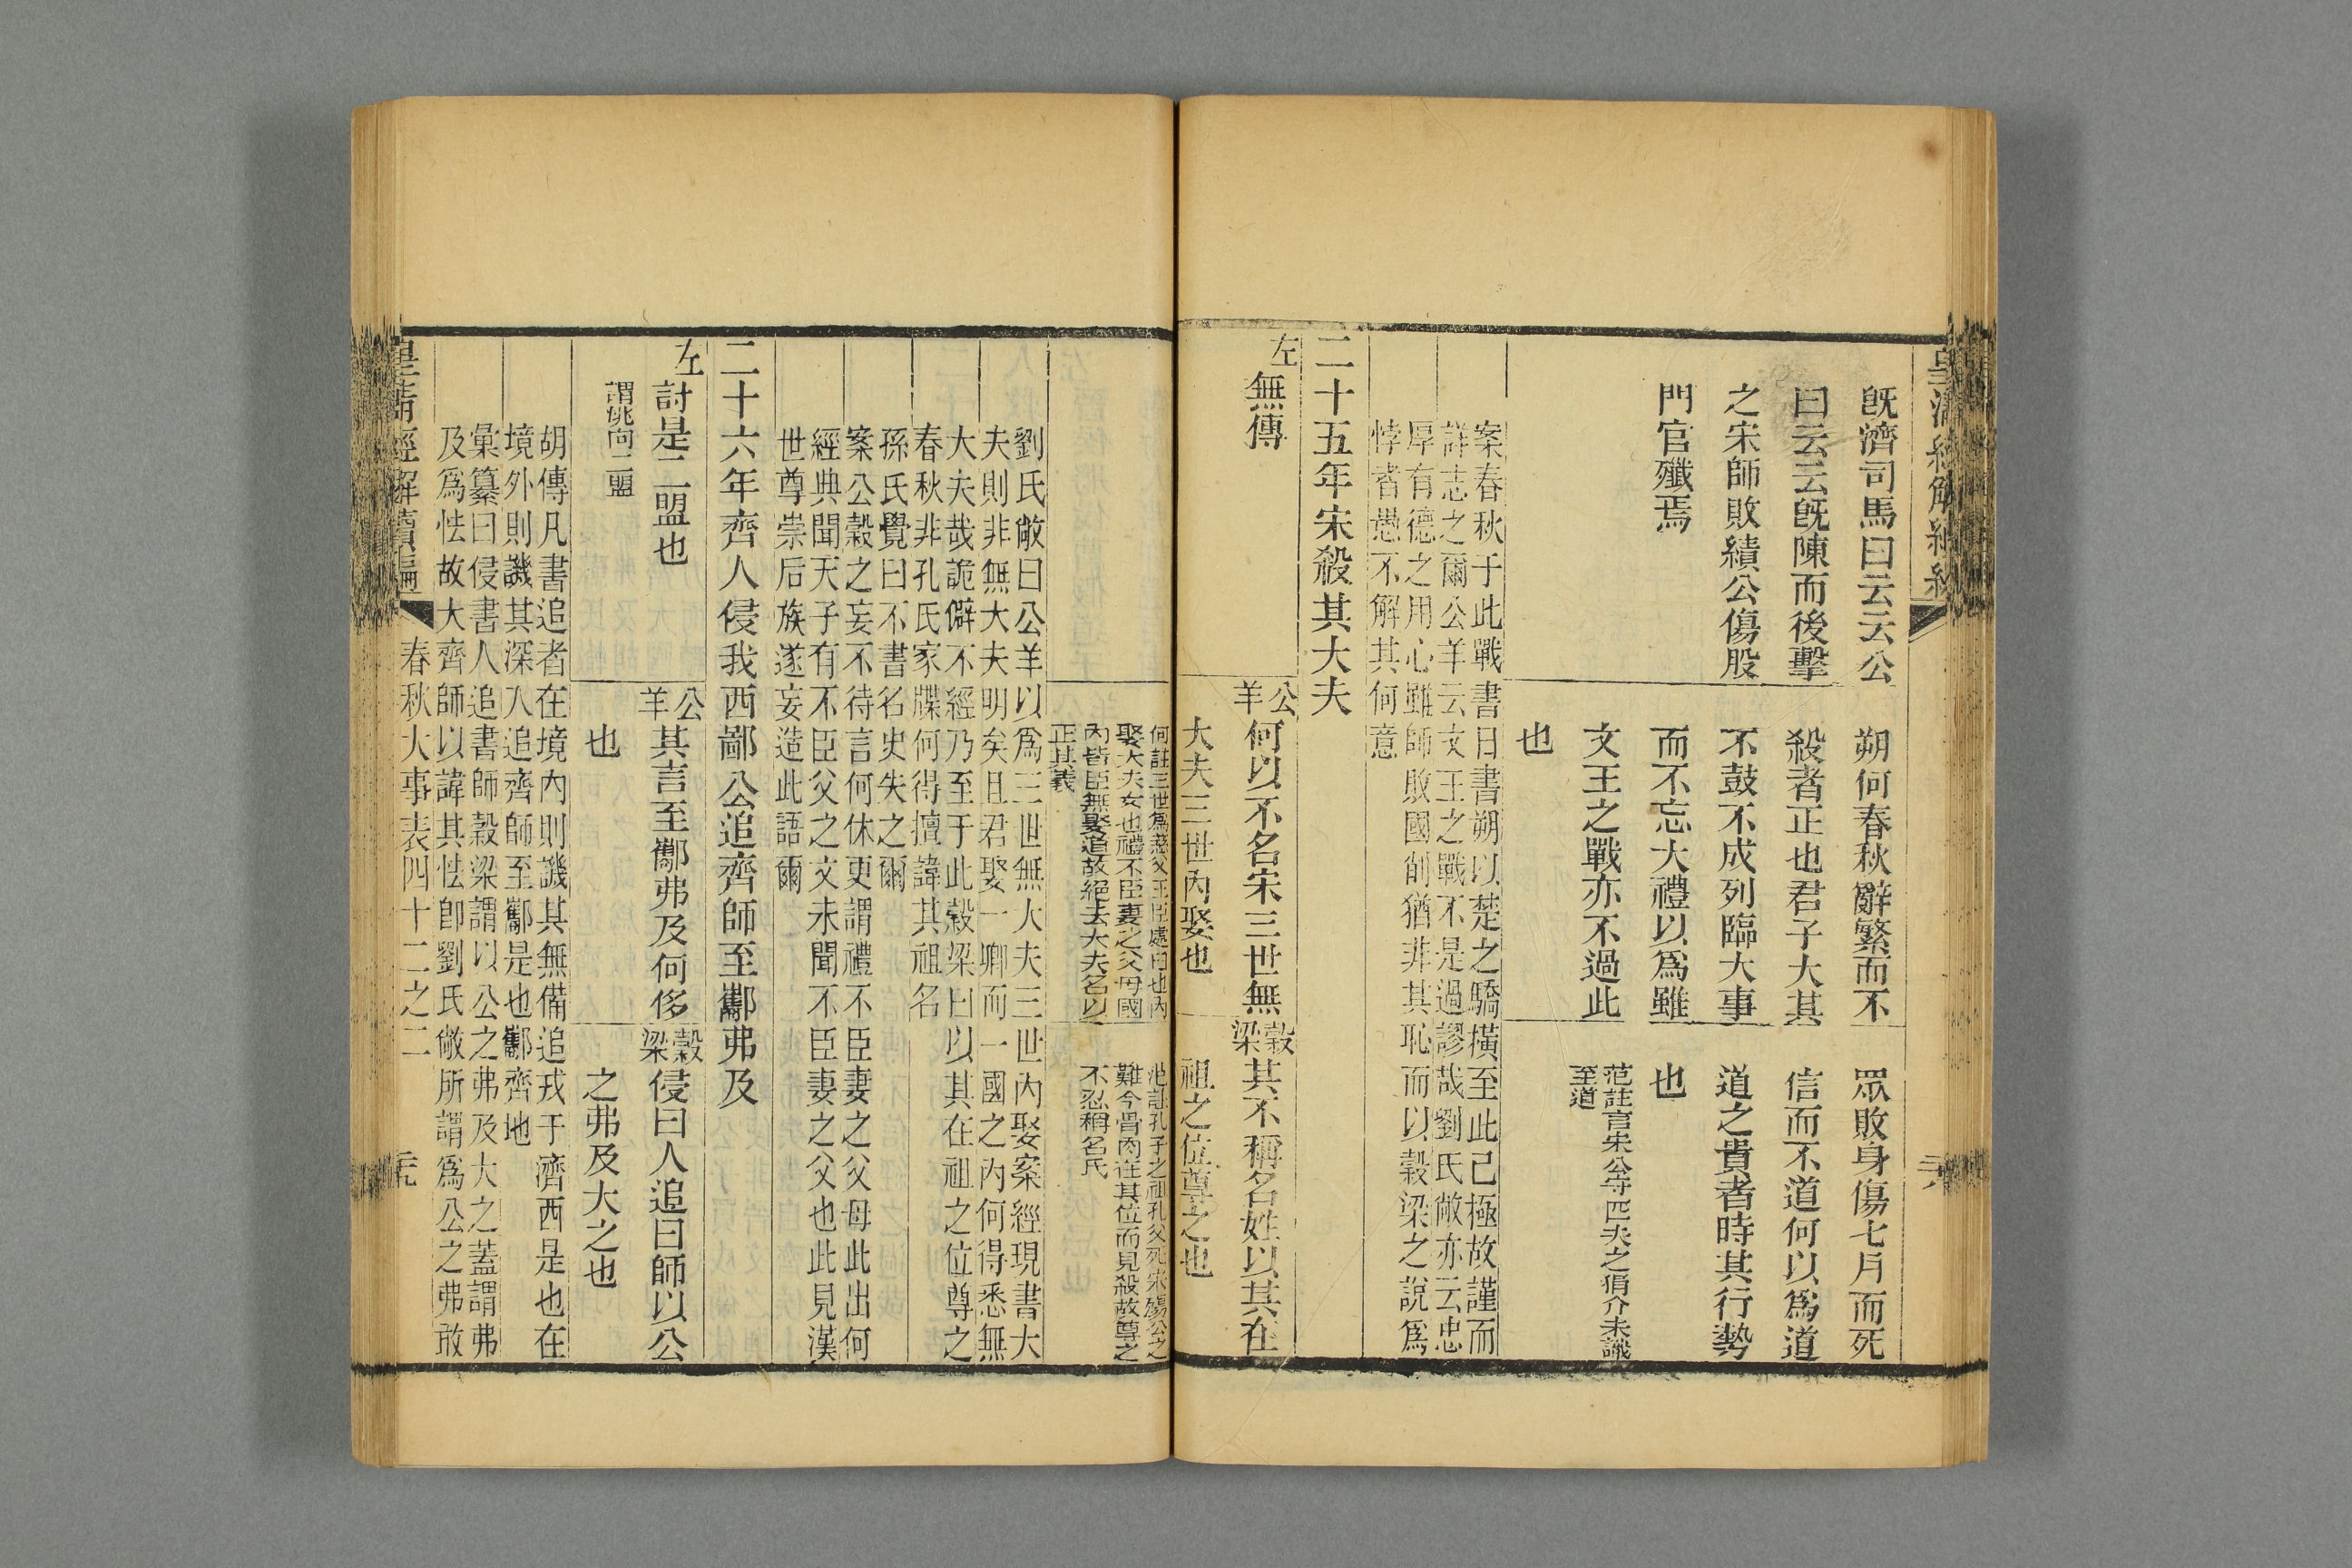 既濟司馬曰云云公
曰云云既陳而後擊
之宋師敗績公傷股
門官殲焉
朔何春秋辭繁而不
殺者正也君子大其
不鼓不成列臨大事
而不忘大禮以爲雖
文王之戰亦不過此
也
眾敗身傷七月而死
信而不道何以爲道
道之貴者時其行勢
也
范註言宋公守匹夫之狷介未識
至道
案春秋于此戰書日書朔以楚之驕橫至此已極故謹而
詳志之爾公羊云文王之戰不是過謬哉劉氏敞亦云忠
厚有德之用心雖師敗國削猶非其恥而以穀梁之說爲
悖者愚不解其何意
二十五年宋殺其大夫
左
無傳
公羊
何以不名宋三世無
大夫三世內娶也
穀梁
其不稱名姓以其在
祖之位尊之也
何註三世爲慈父王臣處臼也內
娶大夫女也禮不臣妻之父母國
內皆臣無娶道故絕去大夫名以
正其義
范註孔子之祖孔父死宋殤公之
難今骨肉在其位而見殺故尊之
不忍稱名氏
劉氏敞曰公羊以爲三世無大夫三世內娶案經現書大
夫則非無大夫明矣且君娶一卿而一國之內何得悉無
大夫哉詭僻不經乃至于此穀梁曰以其在祖之位尊之
春秋非孔氏家牒何得擅諱其祖名
孫氏覺曰不書名史失之爾
案公穀之妄不待言何休更謂禮不臣妻之父母此出何
經典聞天子有不臣父之文未聞不臣妻之父也此見漢
世尊崇后族遂妄造此語爾
二十六年齊人侵我西鄙公追齊師至酅弗及
左
討是二盟也
謂洮向二盟
公羊
其言至酅弗及何侈
也
穀梁
侵曰人追曰師以公
之弗及大之也
胡傳凡書追者在境內則譏其無備追戎于濟西是也在
境外則譏其深入追齊師至酅是也酅齊地
彙纂曰侵書人追書師穀梁謂以公之弗及大之蓋謂弗
及爲怯故大齊師以諱其怯卽劉氏敞所謂爲公之弗敢
皇清經解續編
春秋大事表四十二之二